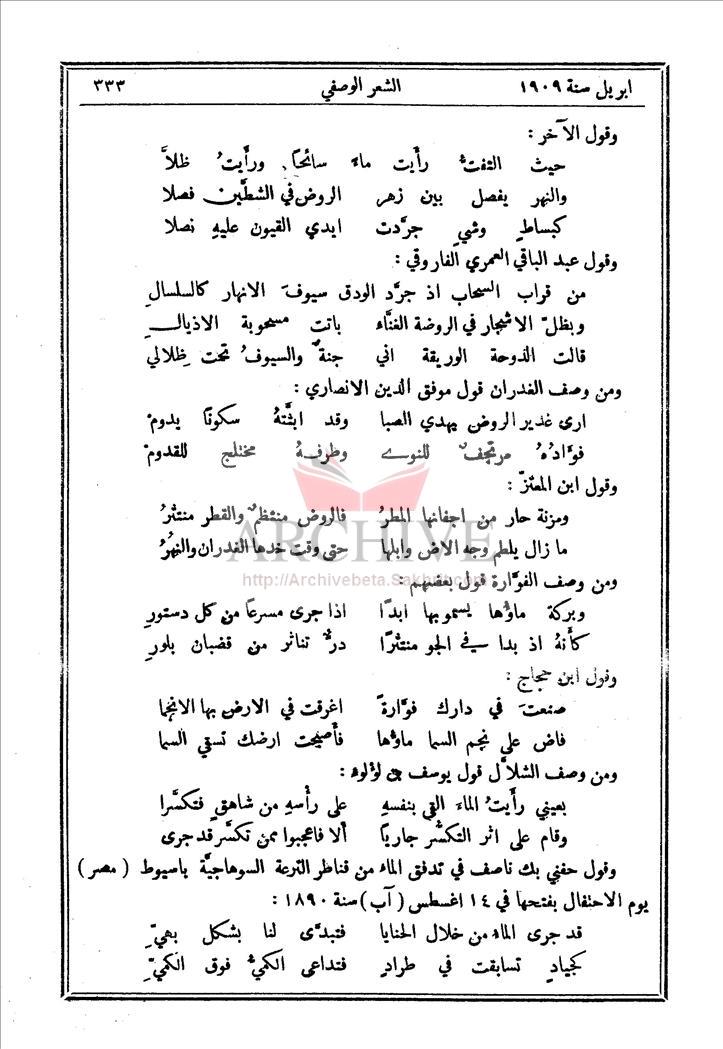 ابريل سنة ١٩٠٩ الشعر الوصفي ٣٣٣
وقول الآخر :
حيث التفتُّ رأيت ماءً سائحاً ورأيتُ ظلاَّ
والنهر يفصل بين زهر الروض في الشطَّين فصلا
كبساطِ وشيٍ جرَّدت ايدي القيون عليهِ نصلا
وقول عبد الباقي العمري الفاروقي :
من قراب السحاب اذ جرَّد الودق سيوفَ الانهار كالسلسالِ
وبظلّ الاشجار في الروضة الغنَّاء باتت مسحوبة الاذيالِ
قالت الدوحة الوريقة اني جنةٌ والسيوفُ تحت ظِلالي
ومن وصف الغدران قول موفق الدين الانصاري :
ارى غدير الروض يهدي الصبا وقد ابثَّتهُ سكونًا يدومْ
فوَادُهُ مرتجفٌ للنوے وطرفهُ مختلج للقدومْ
وقول ابن المعتزّ :
ومزنة حار من اجفانها المطرُ فالروض منتظمٌ والقطر منتثرُ
ما زال يلطم وجه الارض وابلها حتى وقت خدها الغدران والنهُرُ
ARCHIVE
http://Archivebeta.Sakhrit.com
ومن وصف الفوَّارة قول بعضهم :
وبركة ماوُّها يسمو بها ابدًا اذا جرى مسرعًا من كل دستورِ
كأَنهُ اذ بدا في الجو منتثرًا درٌّ تناثر من قضبان بلورِ
وقول ابن حجاج :
صنعتَ في دارك فوَّارةً اغرقت في الارض بها الانجما
فاض على نجم السما ماوُّها فأَصبحت ارضك تسقي السما
ومن وصف الشلاَّل قول يوسف بن لوُلوُه :
بعيني رأَيتُ الماءَ القى بنفسهِ على رأْسهِ من شاهقٍ فتكسَّرا
وقام على اثر التكسُّر جاريًا ألا فاعجبوا ممن تكسَّر قد جرى
وقول حفني بك ناصف في تدفق الماء من قناطر الترعة السوهاجيَّة باسيوط ( مصر )
يوم الاحتفال بفتحها في ١٤ اغسطس ( آب ) سنة ١٨٩٠ :
قد جرى الماءُ من خلال الحنايا فتبدَّى لنا بشكل بهيِّ
كجيادٍ تسابقت في طرادٍ فتداعى الكميُّ فوق الكميِّ